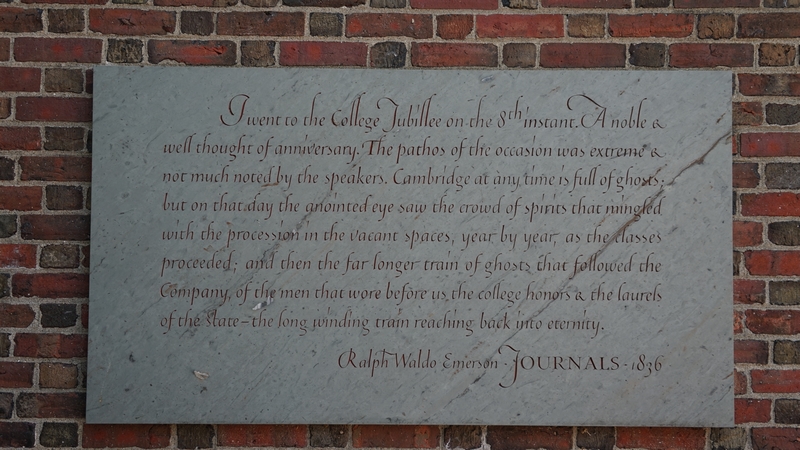 I went to the College Jubilee on the 8th instant. A noble &
well thought of anniversary. The pathos of the occasion was extreme &
not much noted by the speakers. Cambridge at any time is full of ghosts;
but on that day the anointed eye saw the crowd of spirits that mingled
with the procession in the vacant spaces, year by year, as the classes
proceeded; and then the far longer train of ghosts that followed the
Company, of the men that wore before us the college honors & the laurels
of the state – the long winding train reaching back into eternity.
Ralph Waldo Emerson · JOURNALS · 1836